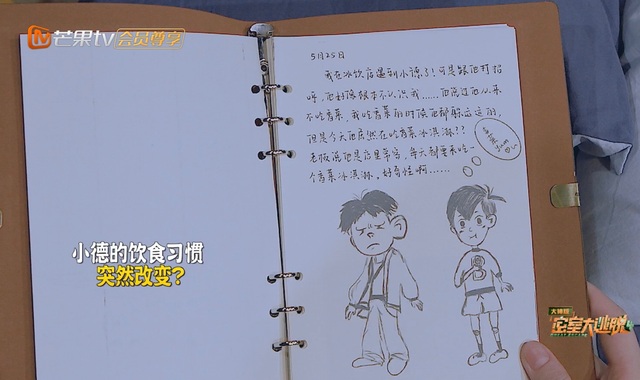 芒果tv 会员尊享
5月25日
我在冰饮店遇到小德了!可是跟他打招
呼,他好像根本不认识我……他说过他从来
不吃香菜,我吃香菜的时候他都躲远远的,
但是今天他居然在吃香菜冰淇淋??
老板说他是店里常客,每天都要来吃一
个香菜冰淇淋,好奇怪啊……
小德的饮食习惯
突然改变?
大神版
密室大逃脱